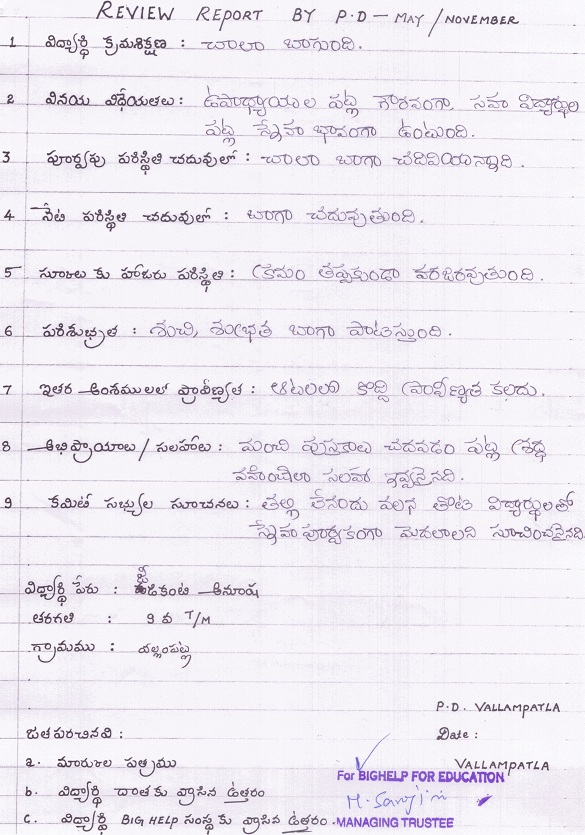 REVIEW REPORT BY P.D - MAY/NOVEMBER
1 విద్యార్థి క్రమశిక్షణ : చాలా బాగుంది.
2 వినయ విధేయతలు: ఉపాధ్యాయుల పట్ల గౌరవంగా, సహ విద్యార్థుల
పట్ల స్నేహ భావంగా ఉంటుంది.
3 పూర్వపు పరిస్థితి చదువులో : చాలా బాగా చదివియున్నాది.
4 నేటి పరిస్థితి చదువులో : బాగా చదువుతుంది.
5 స్కూలు కు హాజరు పరిస్థితి : క్రమం తప్పకుండా హాజరవుతుంది.
6 పరిశుభ్రత : శుచి, శుభ్రత బాగా పాటిస్తుంది.
7 ఇతర అంశములలో ప్రావీణ్యత : ఆటలలో కొద్ది ప్రావీణ్యత కలదు.
8 అభిప్రాయాలు / సలహాలు: మంచి పుస్తకాలు చదవడం పట్ల శ్రద్ధ
వహించేలా సలహా ఇవ్వనైనది.
9 కమిటి సభ్యుల సూచనలు: తల్లి లేనందు వలన తోటి విద్యార్థులతో
స్నేహ పూర్వకంగా మెదలాలని సూచించనైనది.
విద్యార్థి పేరు : ఆనూష
తరగతి : 9 వ T/M
గ్రామము : వల్లంపట్ల
P.D. VALLAMPATLA
జతపరచినవి : Date :
a. మార్కుల పత్రము VALLAMPATLA
For BIGHELP FOR EDUCATION
b. విద్యార్థి దాత కు వ్రాసిన ఉత్తరం
c. విద్యార్థి BIG HELP సంస్థ కు వ్రాసిన ఉత్తరం .
MANAGING TRUSTEE